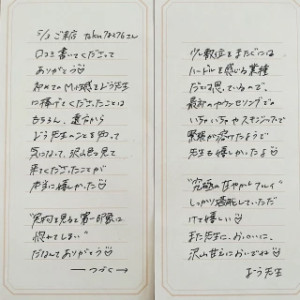 5/3 ご来店 taku78376さん
口コミ書いてくださって
ありがとう♡
初めてのM性感をどう先生
に捧げてくださったことは
もちろん、遠方から
どう先生のことを知って
気になって、沢山見て
来てくださったことが
本当に嬉しかった♡
惚れてしまい"
だなんてありがとう♡
つづく→
ハードルを感じる業種
だとは思っているので、
最初のカウンセリングでの
いちゃいちゃやスキンシップで
緊張が溶けたようで
先生も嬉しかったよ♡
"究極の甘やかしプレイ"
しっかり堪能していただ
けて嬉しい♡
また先生に、おいに
沢山甘えにおいでね♡
どう先生